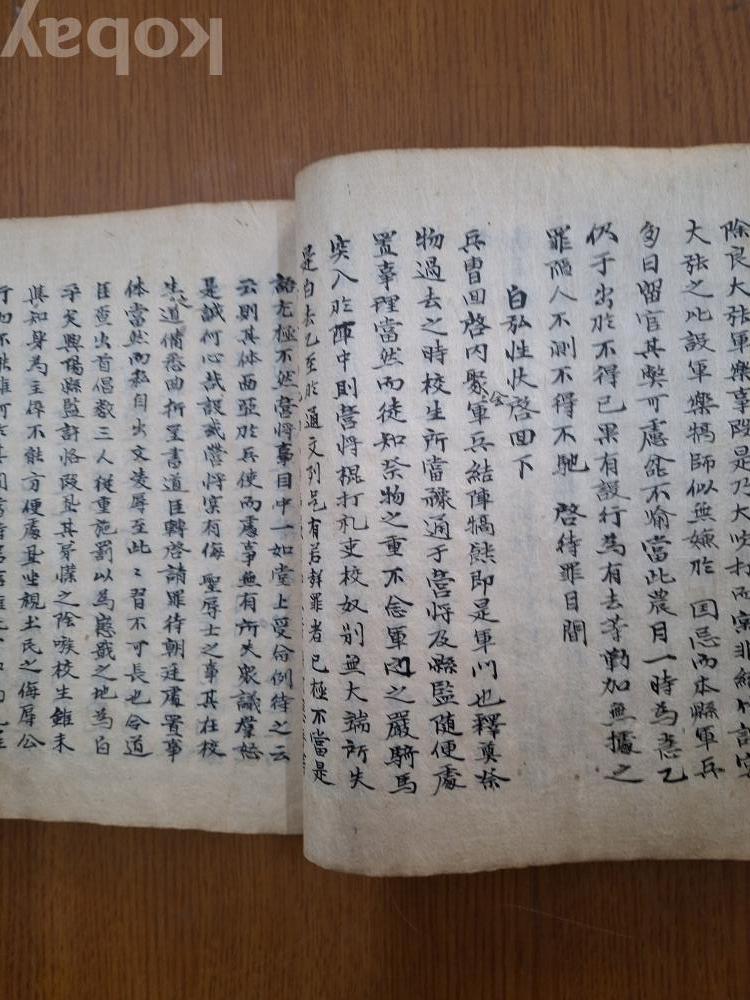 除良大張軍樂事段是乃大吹打而實非結
大張之比設軍樂犒師似無嫌於 国忌而本縣軍兵
多日留官其弊可慮叱不喩當此農月一時為悶乙
仍于出於不得已果有設行為有去等勘加無據之
罪陷人不測不得不馳 啓待罪目間
白弘性狀啓回下
兵曹回啓内聚會軍兵結陣犒饋即是軍門也釋奠祭
物過去之時校生所當禀通于營将及縣監随便處
置事理當然而徒知祭物之重不念軍門之嚴騎馬
突入於陣中則營将棍打礼吏校奴別無大端所失
是白去乙至於通文列邑有若群罪者已極不當是
語尤極不然營将事目中一如堂上受命例待之云
云則其体面亞於兵使而處事無有所失衆議羣起
是誠何心哉設或營将実有侮 聖辱士之事其在校
生之道備悉曲折呈書道臣轉啓請罪待朝廷處置事
体當然而私自出文凌辱至此此習不可長也令道
臣査出首倡数三人従重施罰以為懲戢之地為白
乎矣興陽縣監許恪段 其 之除 校生雖未
與知身為主倅不能方便處置坐視士民之侮辱公